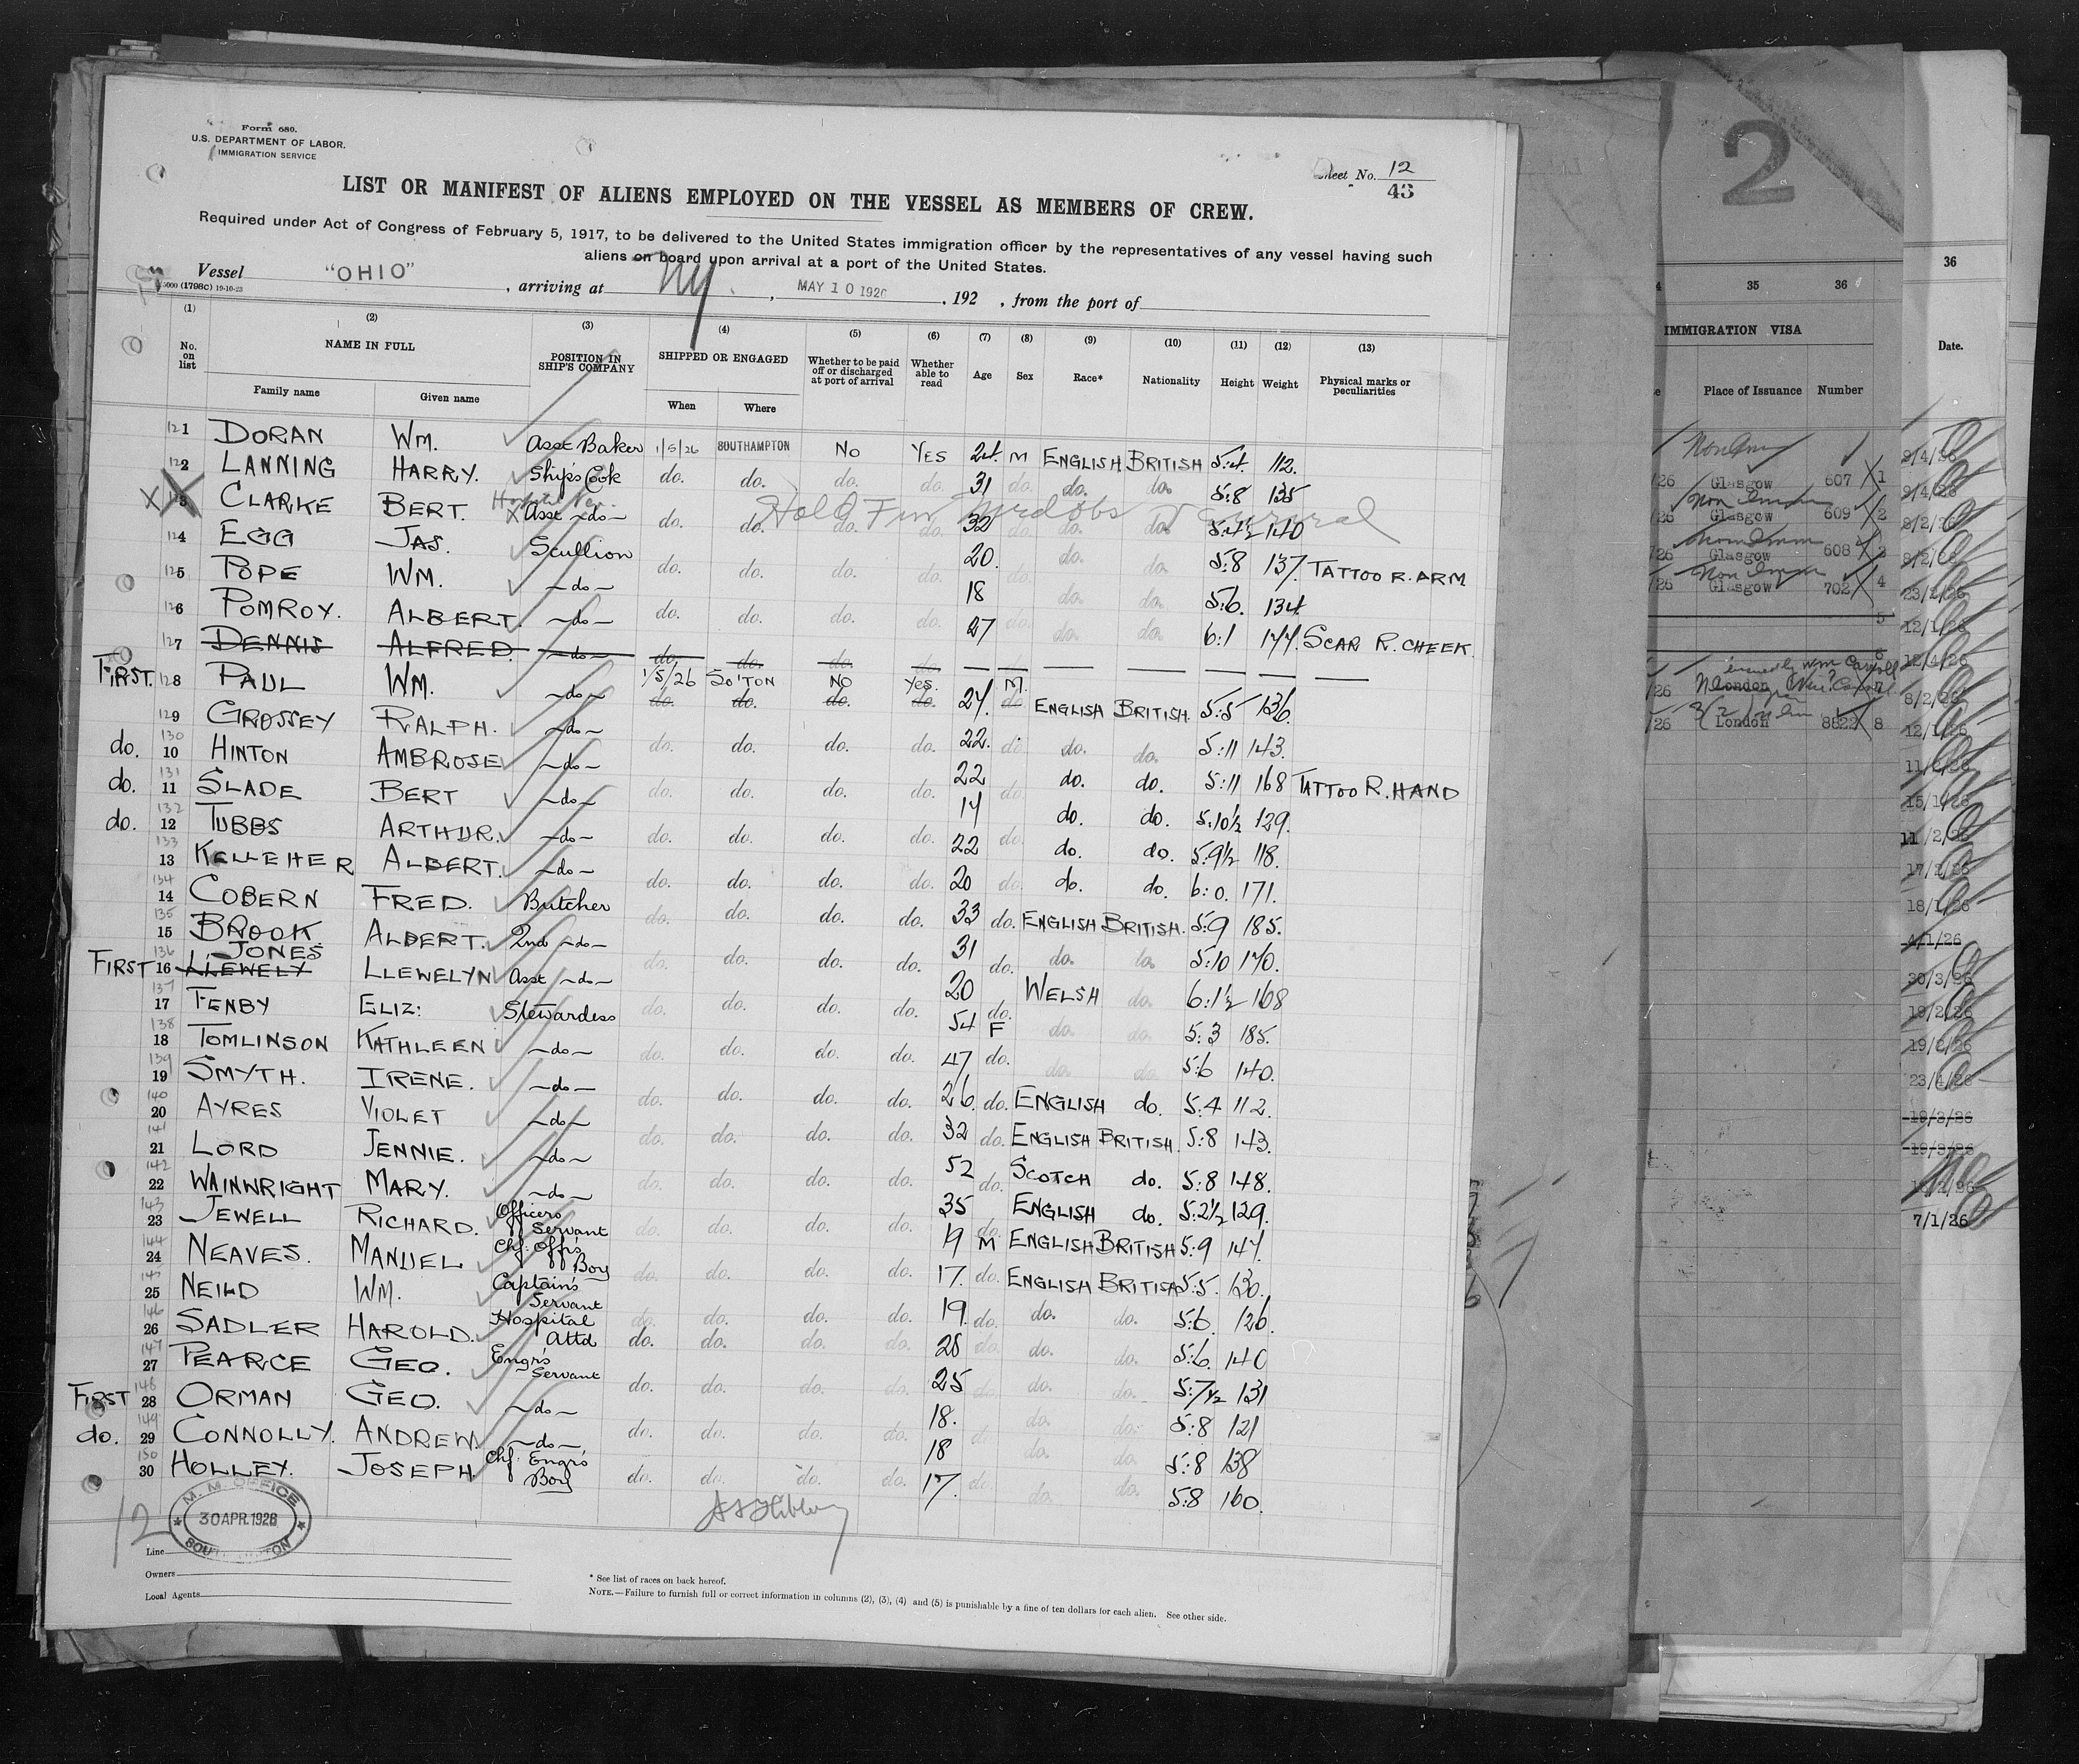 Form 680.
U.S. DEPARTMENT OF LABOR.
IMMIGRATION SERVICE
Sheet No. 12
43
LIST OR MANIFEST OF ALIENS EMPLOYED ON THE VESSEL AS MEMBERS OF CREW.
Required under Act of Congress of February 5, 1917, to be delivered to the United States immigration officer by the representatives of any vessel having such
aliens on board upon arrival at a port of the United States.
Vessel "OHIO", arriving at NY., MAY 10 1926, 192 , from the port of
(1798C) 19-10-23
(1) (2) (3) (4) (5) (6) (7) (8) (9) (10) (11) (12) (13)
No. on list NAME IN FULL POSITION IN SHIP'S COMPANY SHIPPED OR ENGAGED Whether to be paid off or discharged at port of arrival Whether able to read Age Sex Race* Nationality Height Weight Physical marks or peculiarities
Family name Given name When Where
121 DORAN WM. Asst Baker 1/5/26 SOUTHAMPTON NO YES 24 M ENGLISH BRITISH 5:4 112.
122 LANNING HARRY. Ship's Cook do. do. do. do. 31 do. do. do. 5:8 135
X CLARKE BERT. X Asst -do- do. do. do. do. 32 do. do. do. 5:4½ 140
Hold
124 EGG JAS. Scullion do. do. do. do. 20. do. do. do. 5:8 137. TATTOO R. ARM
125 POPE WM. -do- 18 do. do. 5:6. 134
126 POMROY. ALBERT. -do- do. do. do. do. 27 do. do. do. 6:1 177. SCAR R. CHEEK.
127 DENNIS ALFRED. -do- do. do. do. do.
FIRST. 128 PAUL WM. -do- 1/5/26 SO'TON NO Yes. 27. M. ENGLISH BRITISH. 5:5 136.
129 GROSSEY RALPH. -do- do. do. do. do. 22. do. do. do. 5:11 143.
do. 130 10 HINTON AMBROSE -do- do. do. do. do. 22 do. do. do. 5:11 168 TATTOO R. HAND
do. 131 11 SLADE BERT -do- do. do. do. do. 17 do. do. do. 5:10½ 129.
do. 132 12 TUBBS ARTHUR. -do- do. do. do. do. 22 do. do. do. 5:9½ 118.
133 13 KELLEHER ALBERT. -do- do. do. do. do. 20 do. do. do. 6:0. 171.
134 14 COBERN FRED. Butcher do. do. do. do. 33 do. ENGLISH BRITISH. 5:9 185.
135 15 BROOK ALBERT. 2nd -do- do. do. do. do. 31 do. do. do. 5:10 170.
JONES
FIRST 136 16 LLEWELY LLEWELYN Asst -do- do. do. do. do. 20 do. WELSH do. 6:1½ 168
137 17 FENBY ELIZ: Stewardess do. do. do. do. 54 F do. do. 5:3 185.
138 18 TOMLINSON KATHLEEN -do- do. do. do. do. 47 do. do. do. 5:6 140.
139 19 SMYTH. IRENE. -do- do. do. do. do. 26. do. ENGLISH do. 5:4 112.
140 20 AYRES VIOLET -do- do. do. do. do. 32 do. ENGLISH BRITISH. 5:8 143.
141 21 LORD JENNIE. -do- do. do. do. do. 52 do. SCOTCH do. 5:8 148.
142 22 WAINWRIGHT MARY. -do- do. do. do. do. 35 do. ENGLISH do. 5:2½ 129.
143 23 JEWELL RICHARD. Officers Servant do. do. do. do. 19 M ENGLISH BRITISH 5:9 147.
144 24 NEAVES. MANUEL Chf. Off's Boy do. do. do. do. 17. do. ENGLISH BRITISH 5:5. 130.
145 25 NEILD WM. Captain's Servant do. do. do. do. 19. do. do. do. 5:6. 126.
146 26 SADLER HAROLD. Hospital Attd do. do. do. do. 28 do. do. do. 5:6. 140
147 27 PEARCE GEO. Engrs Servant do. do. do. do. 25 do. do. do. 5:7½ 131
FIRST 148 28 ORMAN GEO. -do- do. do. do. do. 18. do. do. do. 5:8 121
do. 149 29 CONNOLLY. ANDREW. -do- 18 do. do. 5:8 138
150 30 HOLLEY. JOSEPH Chf. Engr's Boy do. do. do. do. 17. do. do. do. 5:8 160.
12
M. M. OFFICE
30 APR. 1926
SOUTHAMPTON
Line
Owners
Local Agents
* See list of races on back hereof.
NOTE.—Failure to furnish full or correct information in columns (2), (3), (4) and (5) is punishable by a fine of ten dollars for each alien. See other side.
2
35 36
IMMIGRATION VISA
Place of Issuance Number
/26 Glasgow 607 1
/26 Glasgow 609 2
/26 Glasgow 608 3
/26 Glasgow 702 4
5
6
/26 London 7
/26 London 8822 8
36
Date.
12/1/26
12/4/26
8/2/26
12/1/26
15/1/26
11/2/26
17/2/26
18/1/26
4/1/26
30/3/26
19/2/26
19/2/26
7/1/26